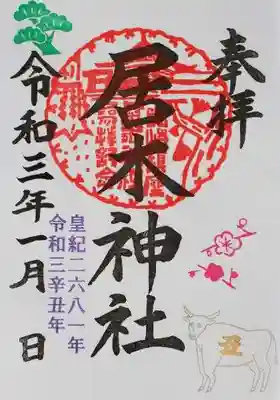 奉拝
居木神社
令和三年一月 日
皇紀二六八一年
令和三辛丑年
丑